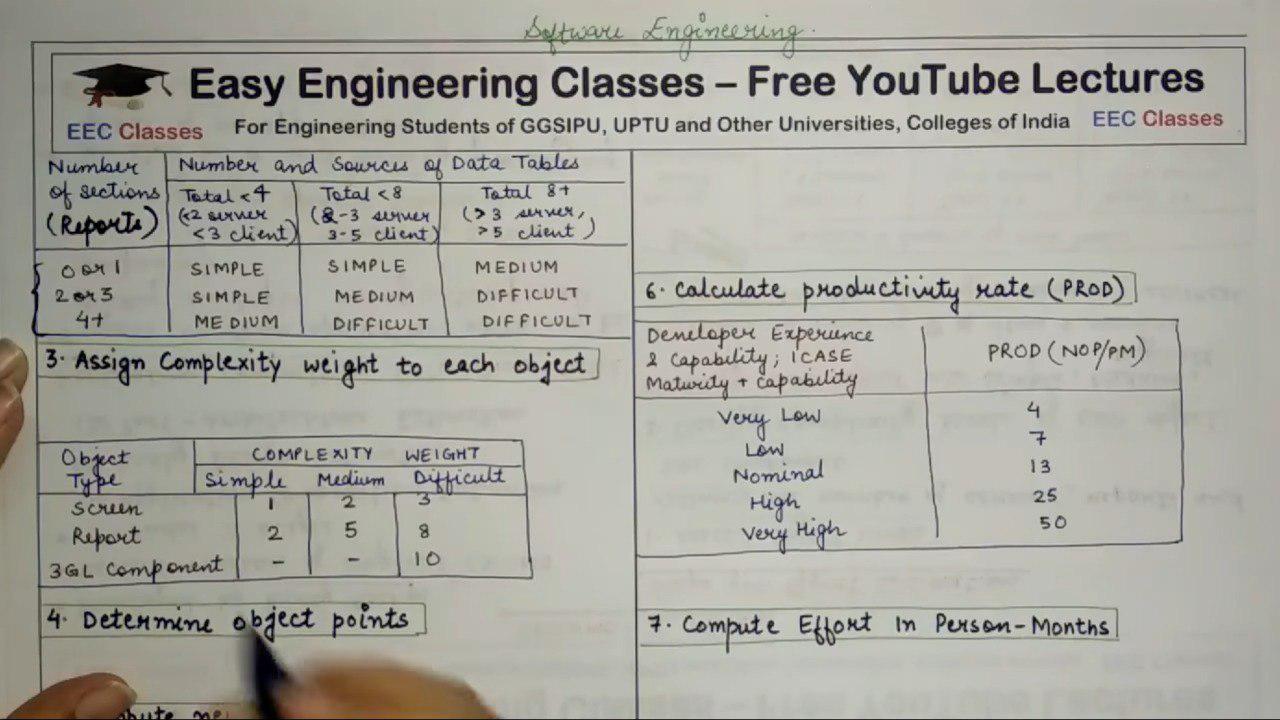 Software Engineering.
Easy Engineering Classes – Free YouTube Lectures
EEC Classes
For Engineering Students of GGSIPU, UPTU and Other Universities, Colleges of India
EEC Classes
Number of sections (Reports) Number and Sources of Data Tables
Total <4 (<2 server <3 client) Total <8 (2-3 server 3-5 client) Total 8+ (>3 server, >5 client)
0 or 1 SIMPLE SIMPLE MEDIUM
2 or 3 SIMPLE MEDIUM DIFFICULT
4+ MEDIUM DIFFICULT DIFFICULT
3. Assign Complexity weight to each object
Object Type COMPLEXITY WEIGHT
Simple Medium Difficult
Screen 1 2 3
Report 2 5 8
3GL Component - - 10
4. Determine object points
6. Calculate productivity rate (PROD)
Developer Experience
& Capability; ICASE PROD (NOP/PM)
Maturity + Capability
Very Low 4
Low 7
Nominal 13
High 25
Very High 50
7. Compute Effort In Person-Months